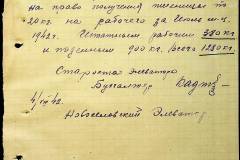 на право получения пшеницы по
20 кг. на рабочего за Июль м-ц
1942г. Штатным рабочим 380 кг
и поденным 900 кг. Всего 1280 кг.
Староста элеватора
Бухгалтер
4/VIII 42.
Новоселовский Элеватор